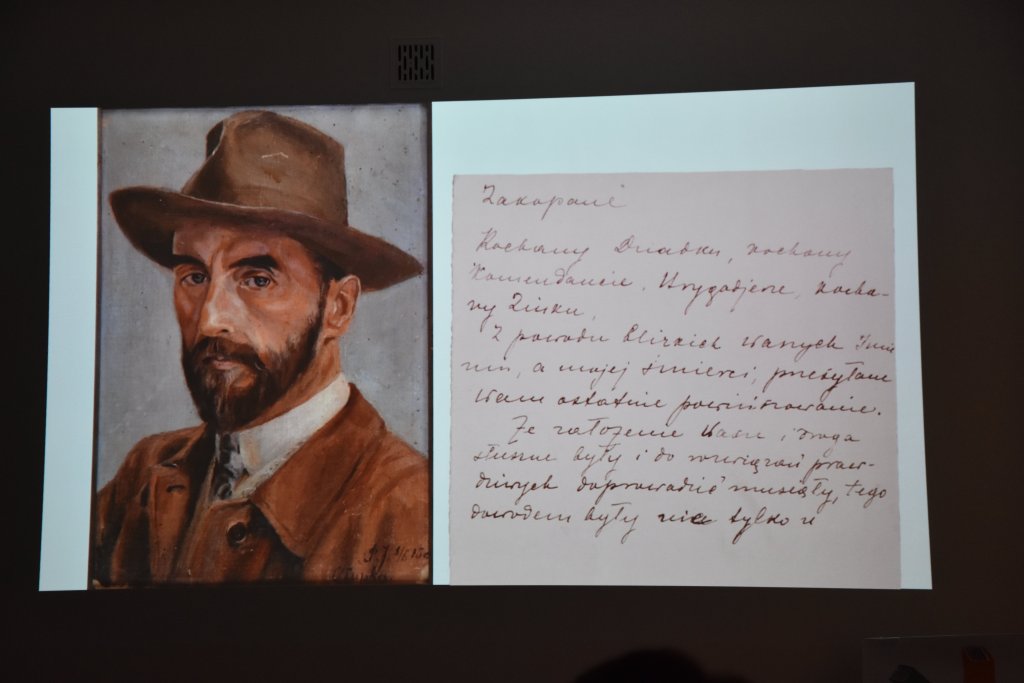 Zakopane
Kochany Dziadku, kochany
Komendancie, Brygadjerze, kocha-
ny Ziuku,
Z powodu blizkich Waszych Imie
nin, a mojej śmierci, przesyłam
Wam ostatnie powinszowanie.
Że założenie Wasze i droga
słuszne były i do rozwiązań praw-
dziwych doprowadzić musiały, tego
dowodem były nie tylko